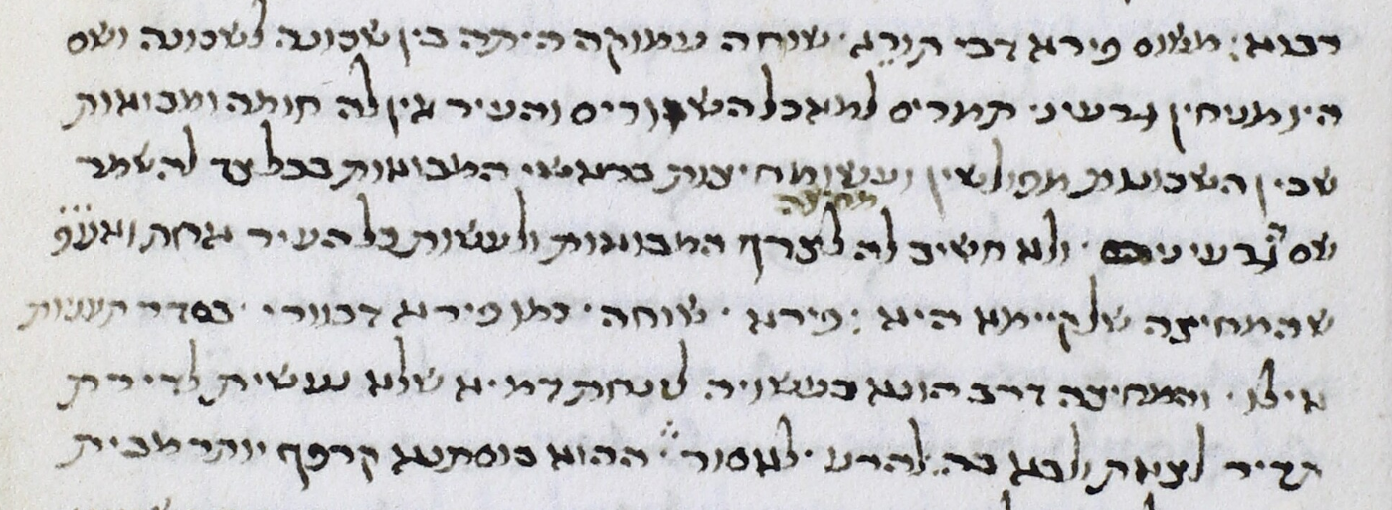 רבנא: משום פירא דבי תורא. שוחה עמוקה היתה בין שכונה לשכונה ושם
היו מניחין גרעיני תמרים למאכל השוורים והעיר אין לה חומה ומבואות
שבין השכונות מפולשין ועשו מחיצות בראשי המבואות בכל צד להשתמר
שם גרעינים. ולא חשיב לה מחיצה לצרף המבואות ולעשות כל העיר אחת ואע״פ
שהמחיצה של קיימא היא: פירא. שוחה. כמו פירא דכוורי. בסדר תעניות
אילו. והמחיצה דרב הונא כשעויה לנחת דמיא שלא נעשית לדירת
תדיר לצאת ולבא בה. להרע. לאסור: ההוא בוסתנא קרפף יותר מבית